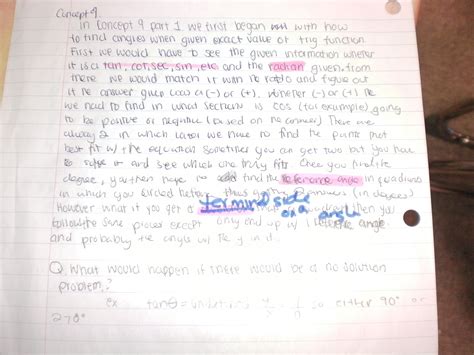 Concept 9
in Concept 9 part 1 we first began with how
to find angles when given exact value of trig function
First we would have to see the given information wheter
it is a tan, cot, sec, sin, etc and the radian given. from
there we would match it with the ratio and figure out
(-) or (+). wheter (-) or (+)
we had to find in what section is cos (for example) going
to be positive or negative (based on the
always 2 in which later we have to find the points that
best fit w/ the equation sometimes you can get two but you have
to and see which one truly fits Once you find the
degree, you then have to find the Reference angle in quadrans
in which you circled before (in degrees)
However what if you get a terminal side
on a angle then you
follow the same process except only end up w/ 1 angle
and probably the angle w/ the y in it.
Q: What would happen if there would be a no solution
problem?
ex tanθ = undefined so either 90° or
270°